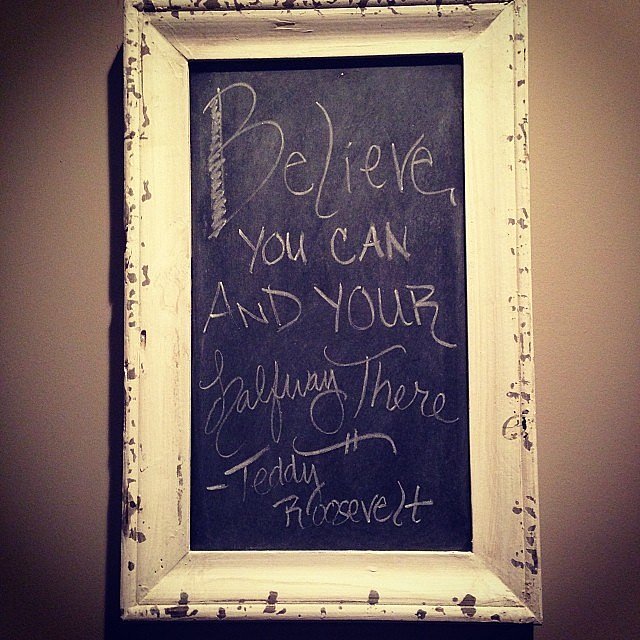 Believe
YOU CAN
AND YOUR
halfway There
- Teddy
Roosevelt